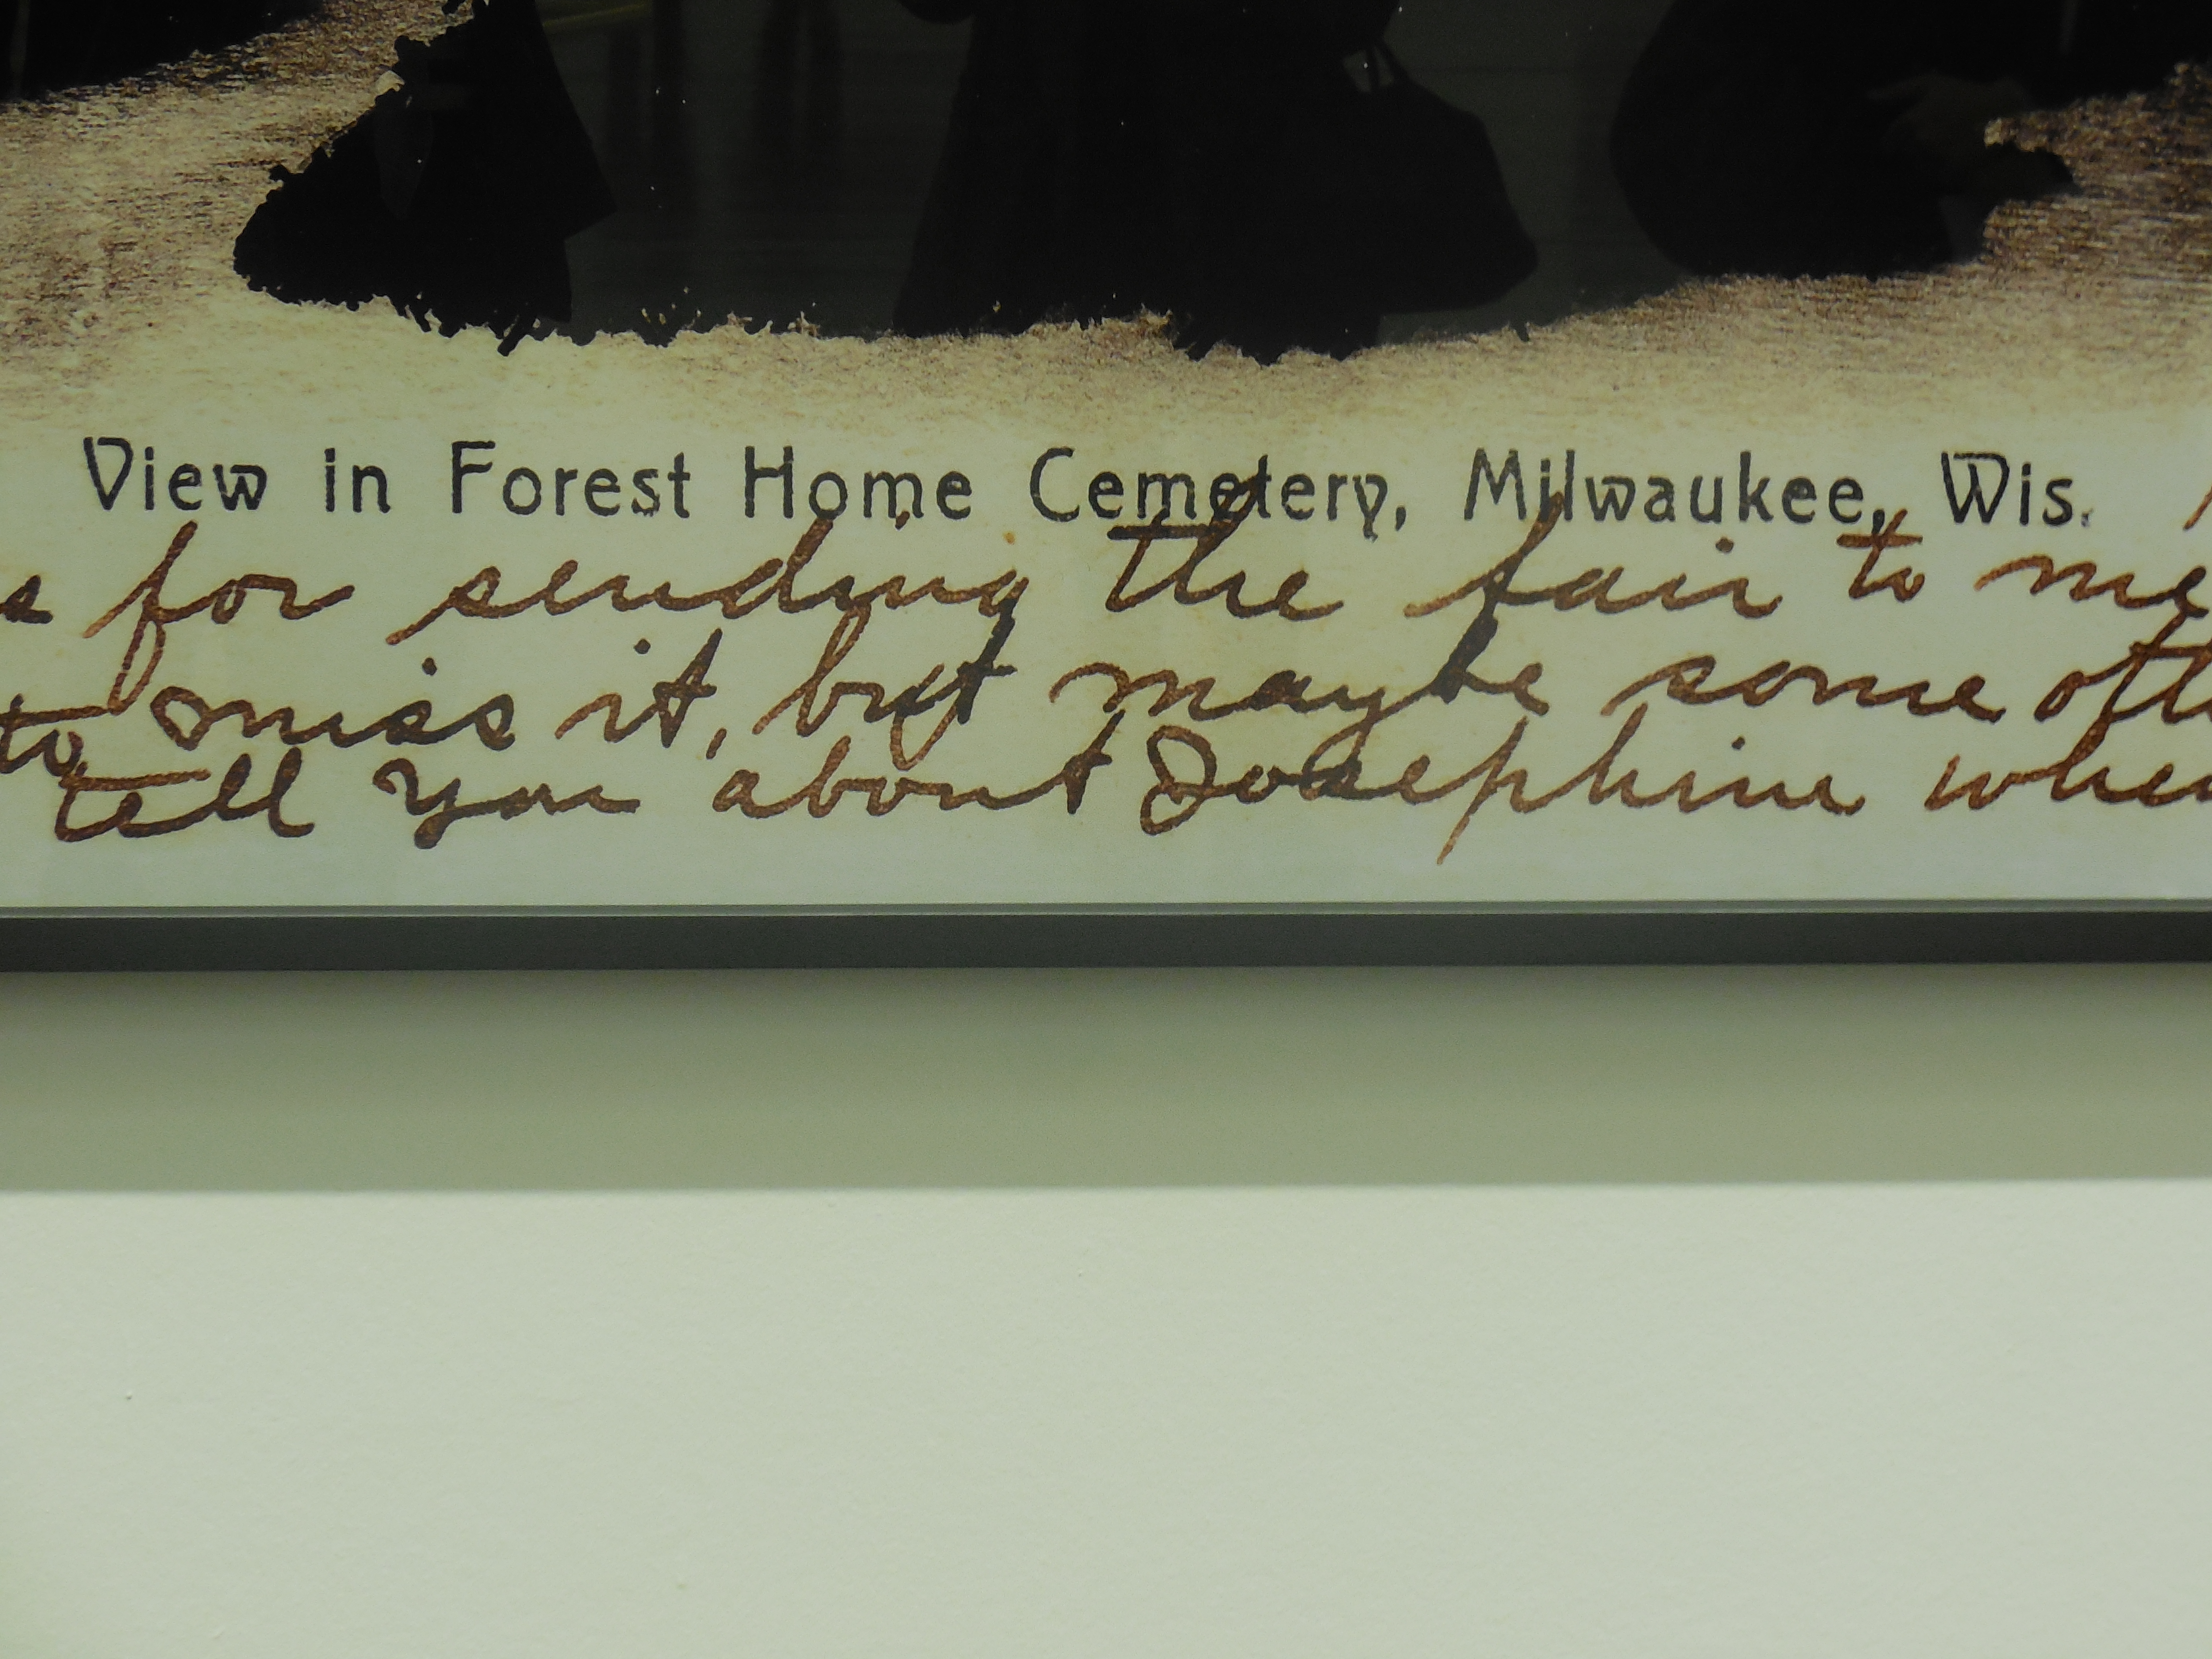 View in Forest Home Cemetery, Milwaukee, Wis.
for sending the fair to me
to miss it, but maybe some oth
tell you about Josephine when